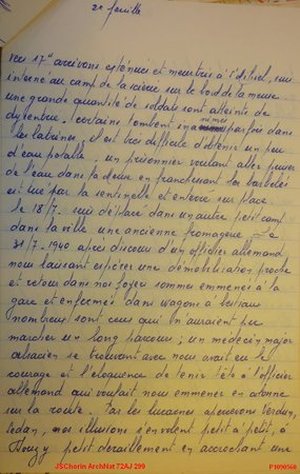 2e feuille
vers 17h arrivons exténués et meurtris à l'dihiel, suis
interné au camp de la scierie sur le bord de la meuse
une grande quantité de soldats sont atteints de
dysentrie. certains tombent inanimés parfois dans
les latrines, il est très difficile d'obtenir un peu
d'eau potable, un prisonnier voulant aller puiser
de l'eau dans la meuse en franchissant les barbelés
est tué par la sentinelle et enterré sur place
le 18/7. suis déplacé dans un autre petit camp
dans la ville une ancienne fromagerie. Le
31/7-1940 après discours d'un officier allemand
nous laissant espérer une démobilisation proche
et retour dans nos foyers sommes emmenés à la
gare et enfermés dans wagons à bestiaux
nombreux sont ceux qui n'auraient pu
marcher un long parcours ; un médecin major
alsacien se trouvant avec nous avait eu le
courage et l'éloquence de tenir tête à l'officier
allemand qui voulait nous emmener en colonne
sur la route. Par les lucarnes apercevons Verdun,
Sedan, nos illusions s'envolent petit à petit, à
petit déraillement en accrochant une
JSChorin ArchNat 72AJ 299
P1090960